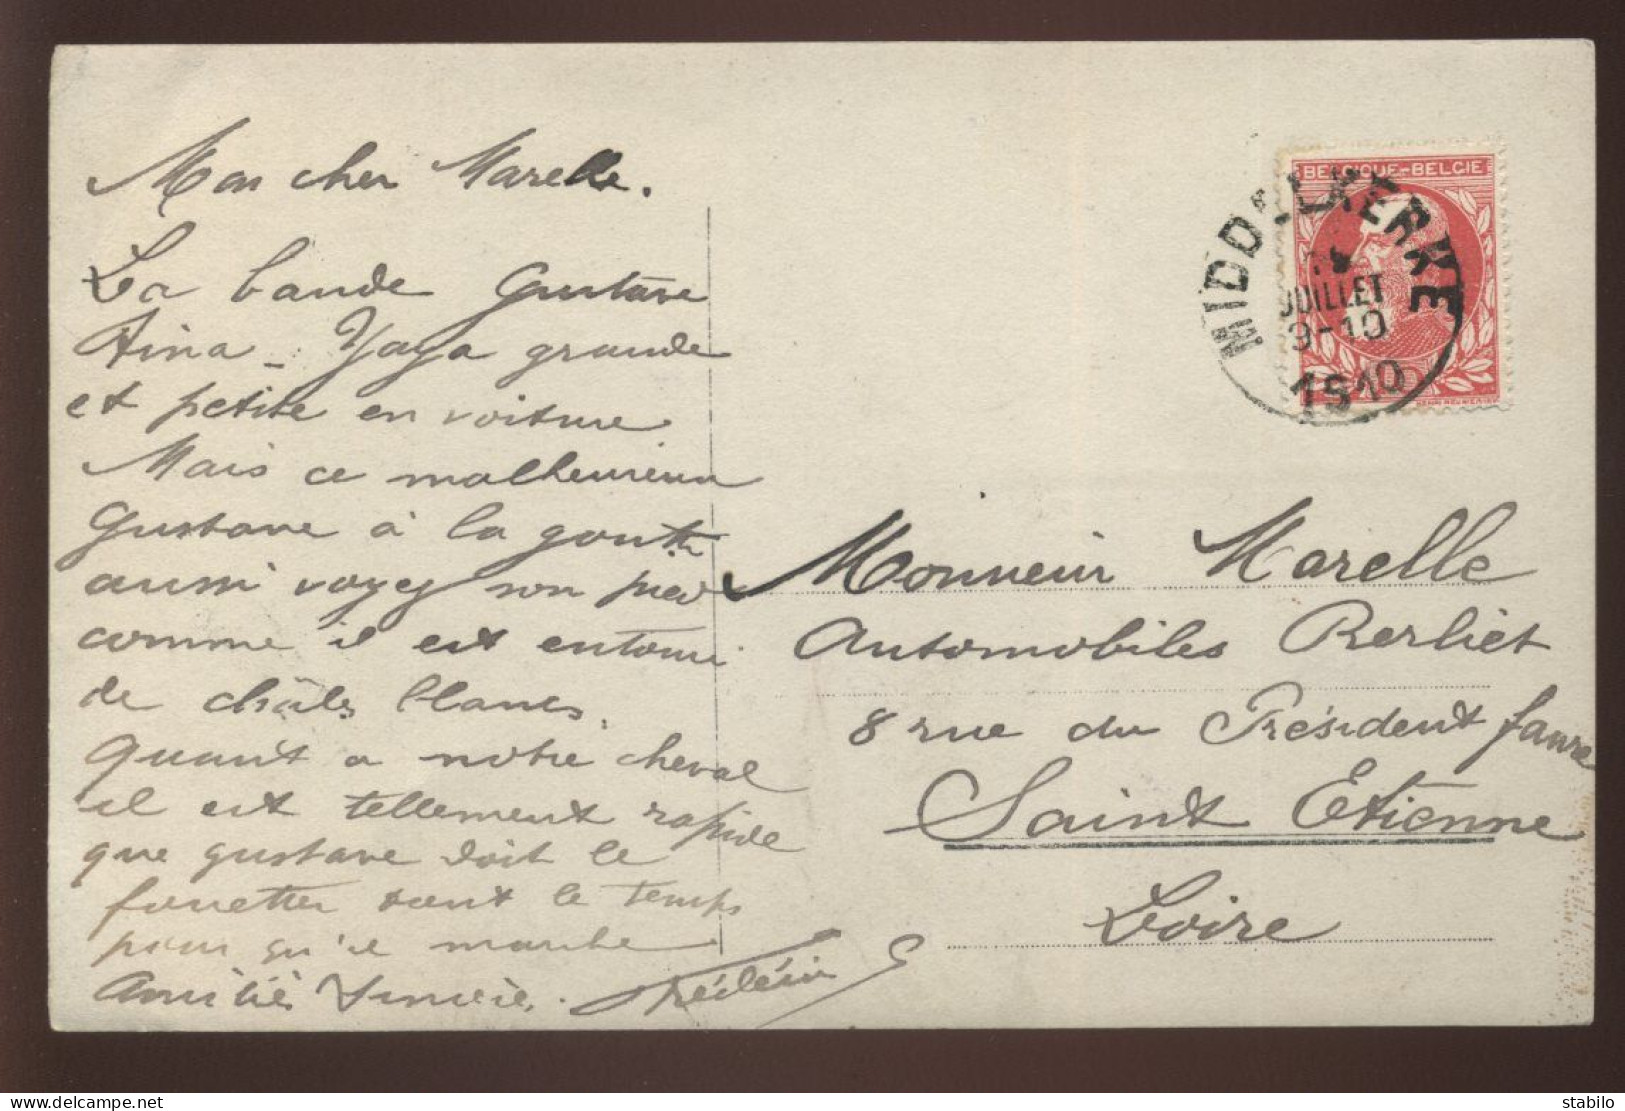 Mon cher Marelle.
La bande Gustave
Aina - Yaya grande
et petite en voiture
Mais ce malheureux
Gustave à la goutte
aussi voyez son pied
comme il est entouré
de châles blancs.
Quant a notre cheval
il est tellement rapide
que gustave doit le
fouetter tout le temps
pour qu'il marche
Amitié sincère.
BELGIQUE-BELGIE
MIDDELKERKE
JUILLET
9-10
1910
Monsieur Marelle
Automobiles Berliet
8 rue du Président faure
Saint Etienne
Loire
delcampe.net
stabilo